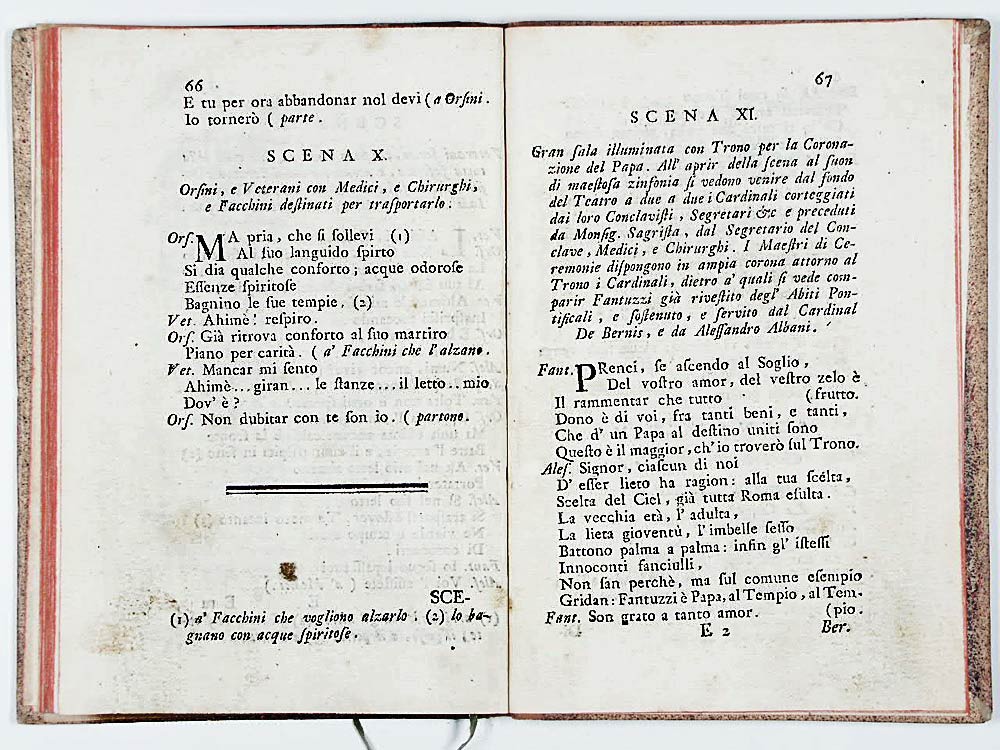 66
E tu per ora abbandonar nol devi (a Orſini.
Io tornerò ( parte.
SCENA X.
Orſini, e Veterani con Medici, e Chirurghi,
e Facchini deſtinati per traſportarlo.
Orſ. MA pria, che ſi ſollevi (1)
Al ſuo languido ſpirto
Si dia qualche conforto; acque odoroſe
Eſſenze ſpiritoſe
Bagnino le ſue tempie. (2)
Vet. Ahimè! reſpiro.
Orſ. Già ritrova conforto al ſuo martiro
Piano per carità. ( a' Facchini che l'alzano.
Vet. Mancar mi ſento
Ahimè...giran...le ſtanze...il letto..mio
Dov' è?
Orſ. Non dubitar con te ſon io. ( partono.
SCE-
(1) a' Facchini che vogliono alzarlo. (2) lo ba-
gnano con acque ſpiritoſe.
67
SCENA XI.
Gran ſala illuminata con Trono per la Corona-
zione del Papa. All' aprir della ſcena al ſuon
di maeſtoſa zinfonia ſi vedono venire dal fondo
del Teatro a due a due i Cardinali corteggiati
dai loro Conclaviſti, Segretari &c e preceduti
da Monſig. Sagriſta, dal Segretario del Con-
clave, Medici, e Chirurghi. I Maeſtri di Ce-
remonie diſpongono in ampia corona attorno al
Trono i Cardinali, dietro a' quali ſi vede com-
parir Fantuzzi già riveſtito degl' Abiti Pon-
tificali, e ſoſtenuto, e ſervito dal Cardinal
De Bernis, e da Aleſſandro Albani.
Fant. PRenci, ſe aſcendo al Soglio,
Del voſtro amor, del veſtro zelo è
Il rammentar che tutto (frutto.
Dono è di voi, fra tanti beni, e tanti,
Che d' un Papa al deſtino uniti ſono
Queſto è il maggior, ch'io troverò ſul Trono.
Aleſ. Signor, ciaſcun di noi
D' eſſer lieto ha ragion: alla tua ſcélta,
Scelta del Ciel, già tutta Roma eſulta.
La vecchia età, l' adulta,
La lieta gioventù, l' imbelle ſeſſo
Battono palma a palma: infin gl' iſteſſi
Innoconti fanciulli,
Non ſan perchè, ma ſul comune eſempio
Gridan: Fantuzzi è Papa, al Tempio, al Tem.
Fant. Son grato a tanto amor. (pio.
E 2 Ber.